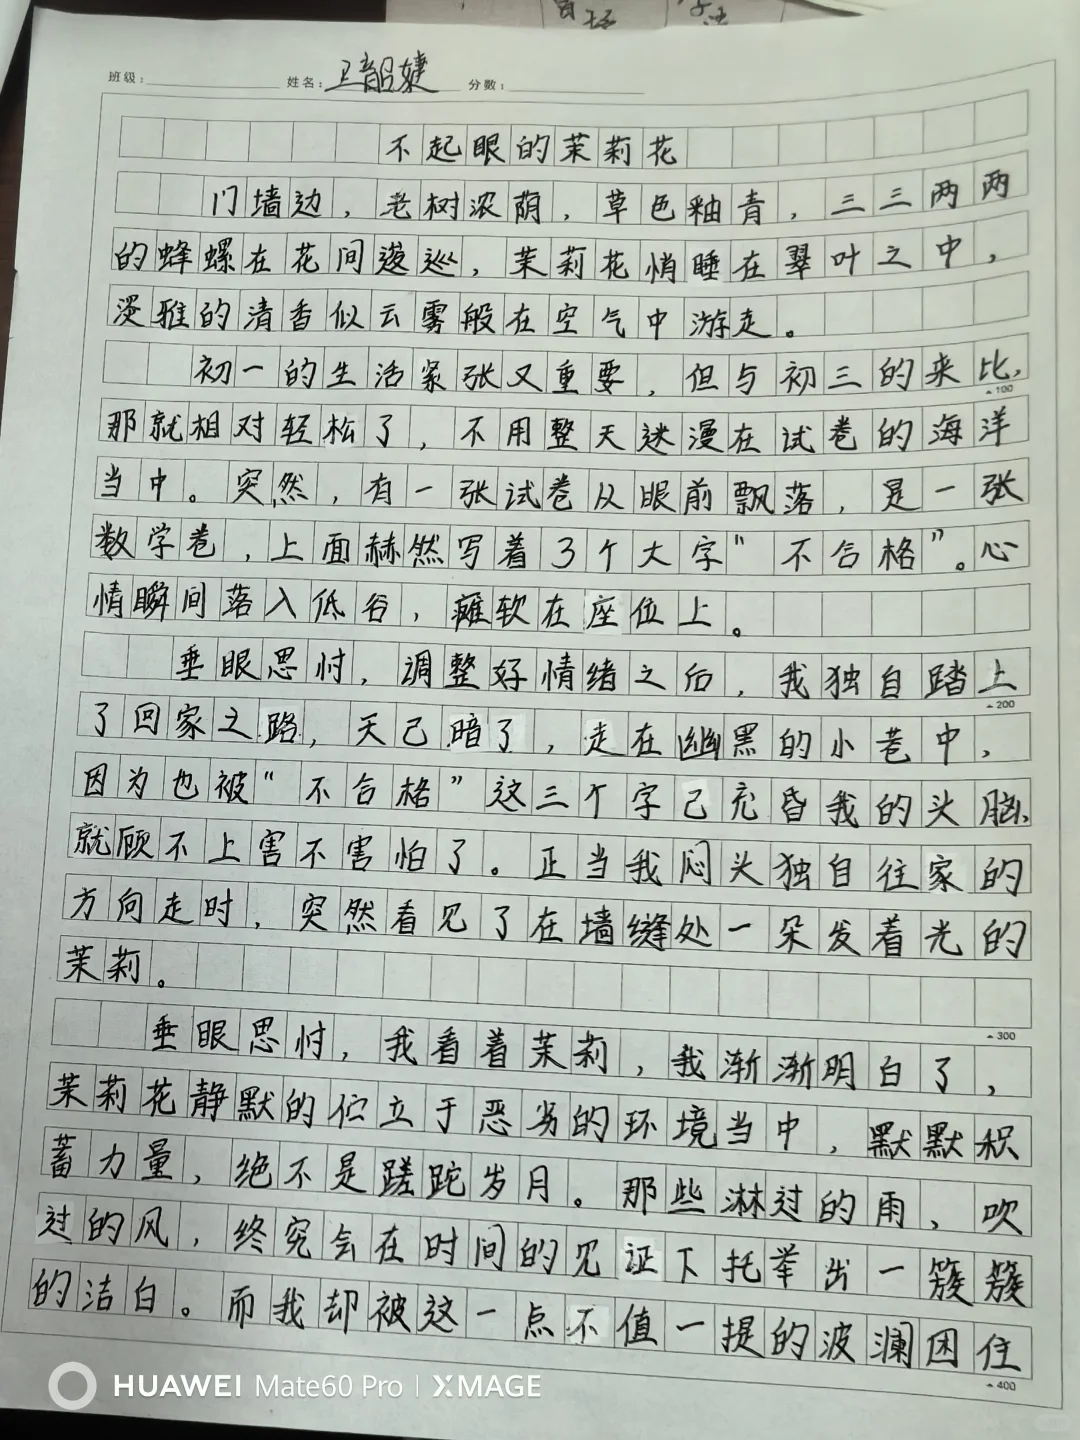 班级：
姓名：卫韶婕
分数：
不起眼的茉莉花
门墙边，老树浓荫，草色釉青，三三两两
的蜂螺在花间逡巡，茉莉花悄睡在翠叶之中，
漫雅的清香似云雾般在空气中游走。
初一的生活紧张又重要，但与初三的来比，
100
那就相对轻松了，不用整天迷漫在试卷的海洋
当中。突然，有一张试卷从眼前飘落，是一张
数学卷，上面赫然写着3个大字“不合格”。心
情瞬间落入低谷，瘫软在座位上。
垂眼思忖，调整好情绪之后，我独自踏上
200
了回家之路，天己暗了，走在幽黑的小巷中，
因为也被“不合格”这三个字己充昏我的头脑，
就顾不上害不害怕了。正当我闷头独自往家的
方向走时，突然看见了在墙缝处一朵发着光的
茉莉。
300
垂眼思忖，我看着茉莉，我渐渐明白了，
茉莉花静默的伫立于恶劣的环境当中，默默积
蓄力量，绝不是蹉跎岁月。那些淋过的雨，吹
过的风，终究会在时间的见证下托举出一簇簇
的洁白。而我却被这一点不值一提的波澜困住
400
HUAWEI Mate60 Pro | XMAGE